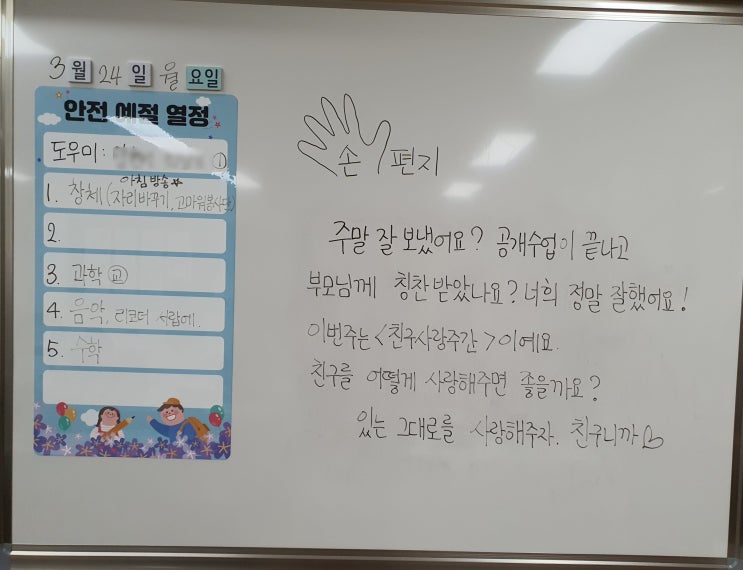 3월 24일 월요일
안전 예절 열정
도우미: ①
아침방송★
1. 창체(자리바꾸기, 고마워봉사단)
2.
3. 과학 ㉠
4. 음악, 리코더 사랍에.
5. 수학
손 편지
주말 잘 보냈어요? 공개수업이 끝나고
부모님께 칭찬 받았나요? 너희 정말 잘했어요!
이번주는 <친구사랑주간>이에요.
친구를 어떻게 사랑해주면 좋을까요?
있는 그대로를 사랑해주자. 친구니까